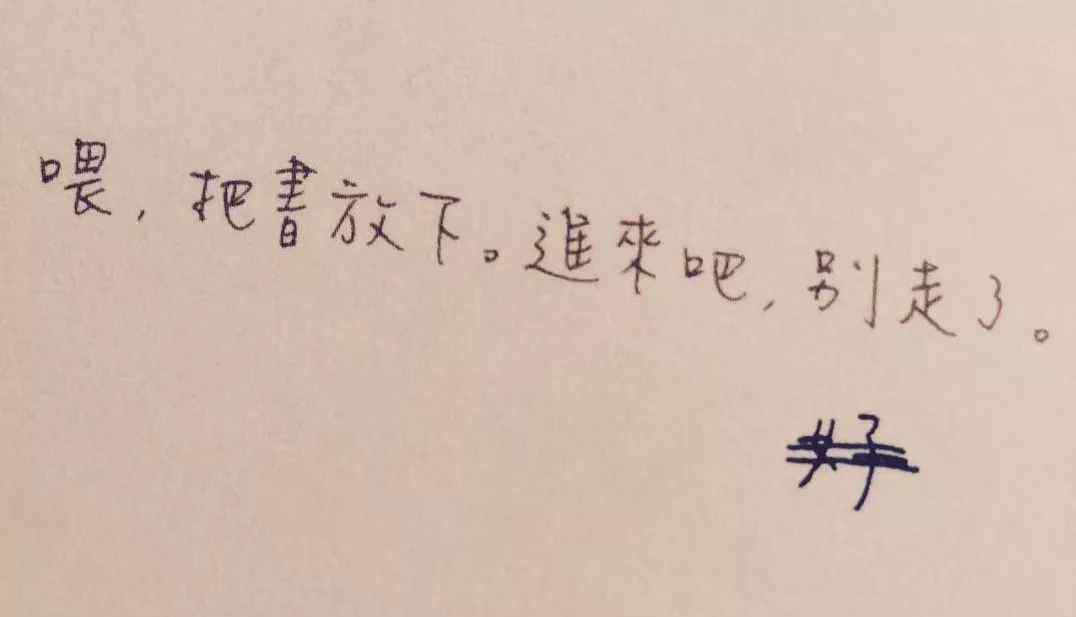 喂，把書放下。進來吧，别走了。
好